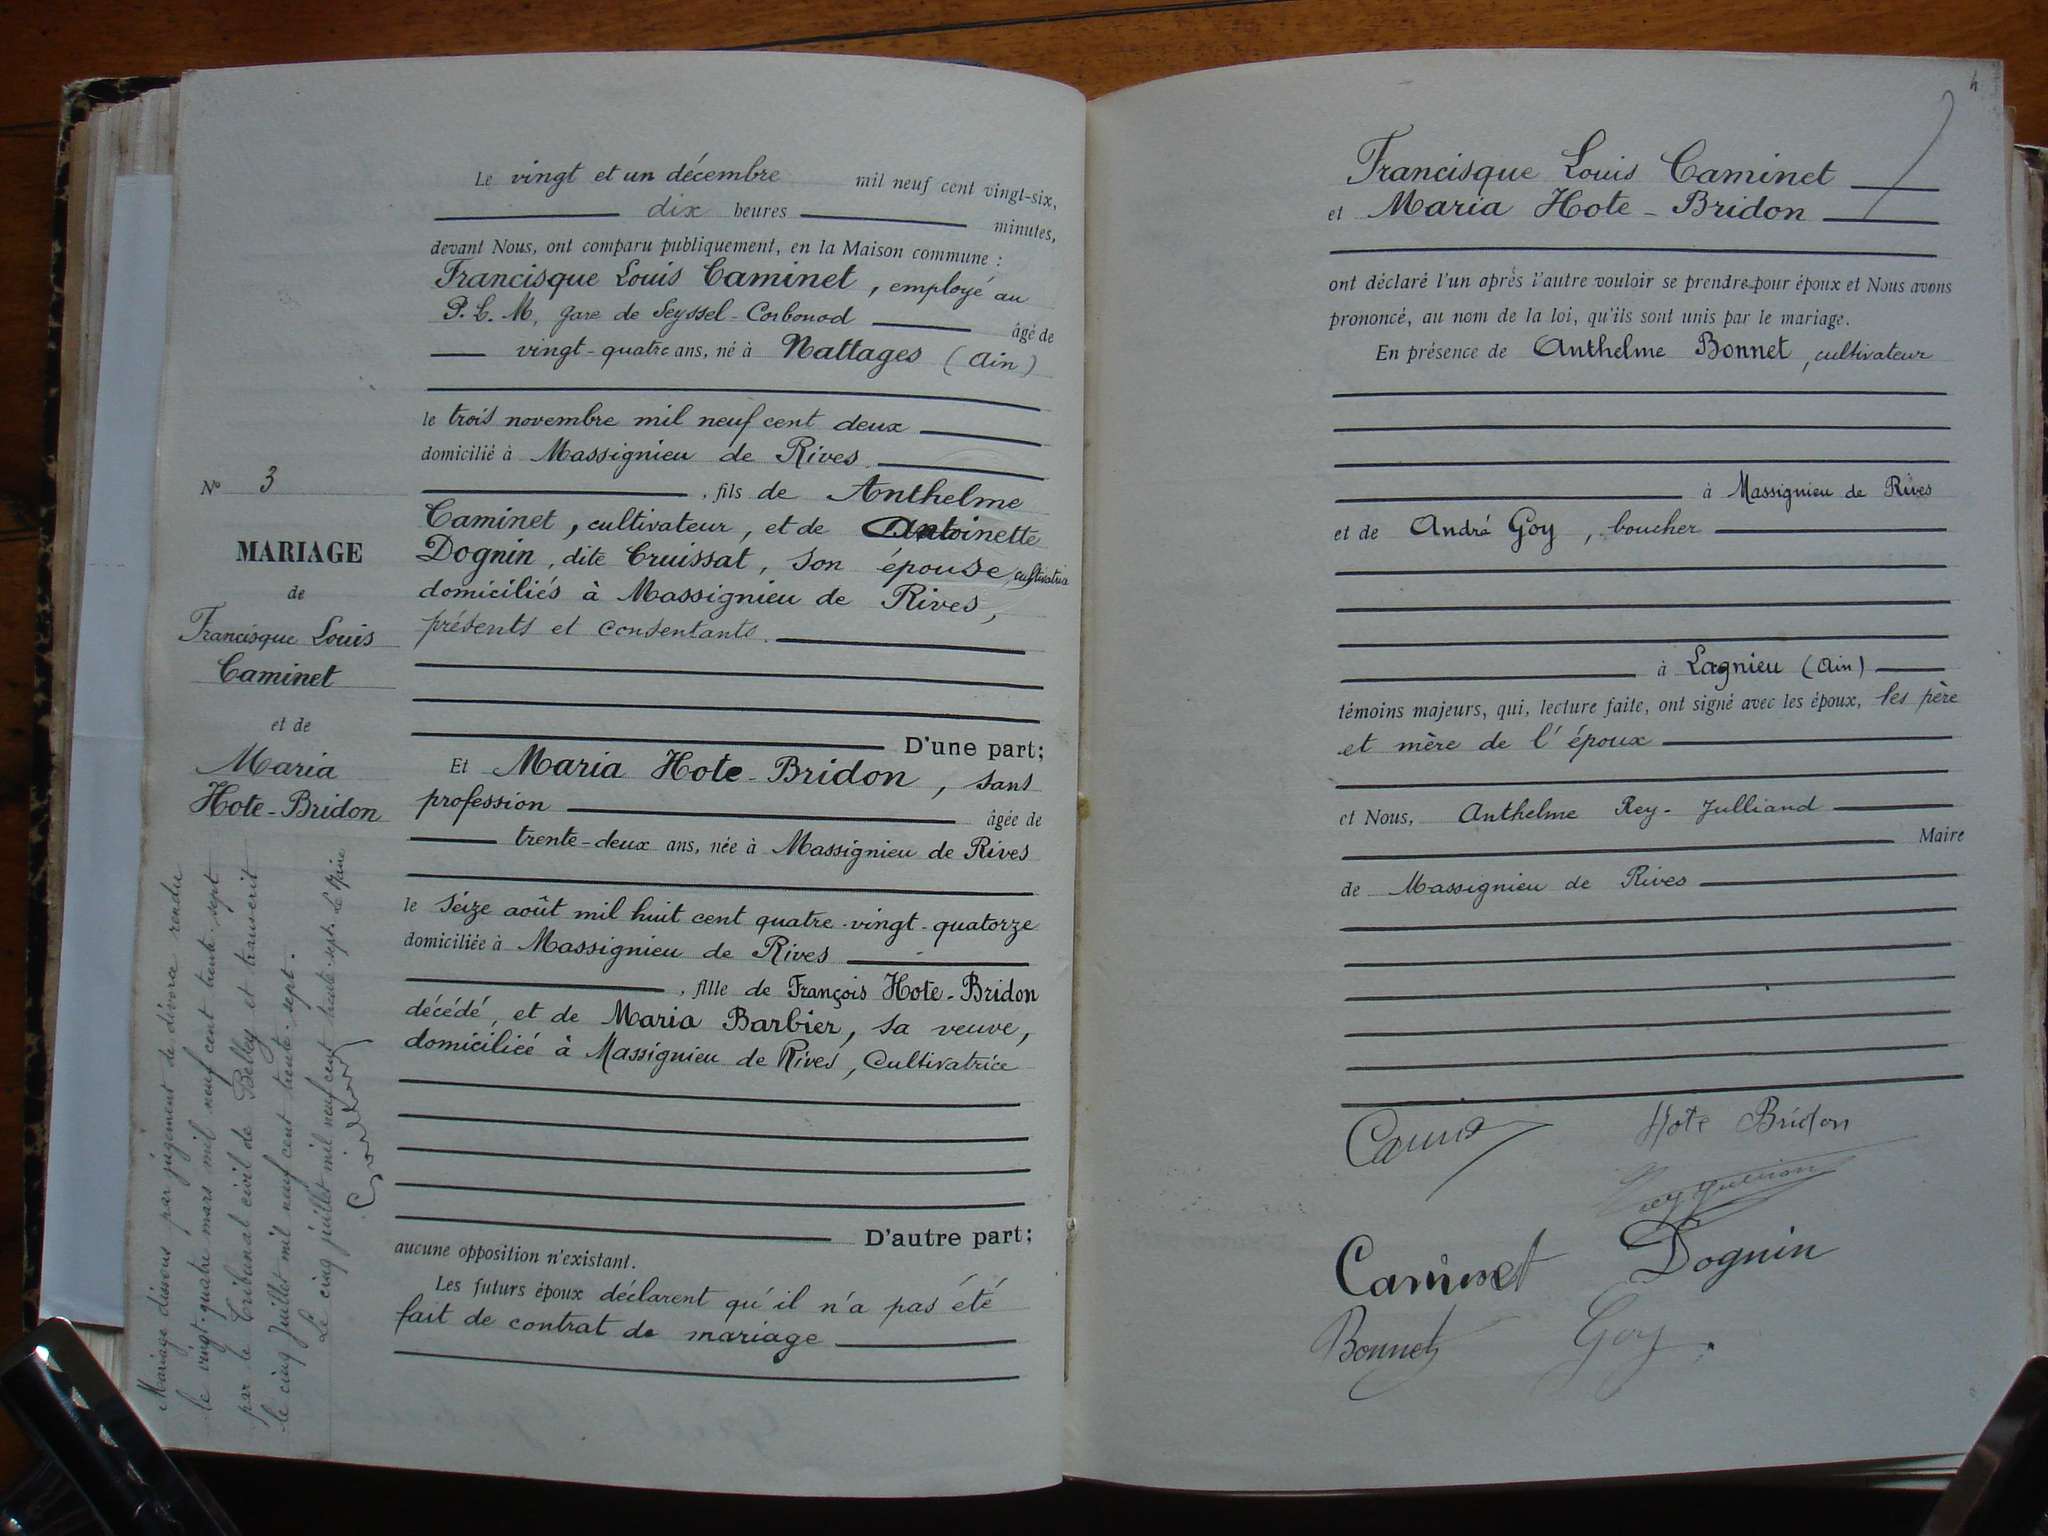 Le vingt et un décembre mil neuf cent vingt-six,
dix heures minutes,
devant Nous, ont comparu publiquement, en la Maison commune :
Francisque Louis Caminet, employé au
P. L. M, gare de Seyssel-Corbonod âgé de
vingt-quatre ans, né à Nattages (Ain)
le trois novembre mil neuf cent deux
domicilié à Massignieu de Rives
, fils de Anthelme
Caminet, cultivateur, et de Antoinette
Dognin, dite Cruissat, son épouse, cultivatrice
domiciliés à Massignieu de Rives,
présents et consentants.
D'une part;
Et Maria Hote-Bridon, sans
profession âgée de
trente-deux ans, née à Massignieu de Rives
le seize août mil huit cent quatre-vingt-quatorze
domiciliée à Massignieu de Rives
, fille de François Hote-Bridon
décédé, et de Maria Barbier, sa veuve,
domiciliée à Massignieu de Rives, Cultivatrice
D'autre part;
aucune opposition n'existant.
Les futurs époux déclarent qu'il n'a pas été
fait de contrat de mariage
No 3
MARIAGE
de
Francisque Louis
Caminet
et de
Maria
Hote-Bridon
Mariage dissous par jugement de divorce rendu
le vingt-quatre mars mil neuf cent trente-sept
par le Tribunal civil de Belley et transcrit
le cinq Juillet mil neuf cent trente-sept.
Le cinq juillet mil neuf cent trente-sept. Le Maire
4
Francisque Louis Caminet
et Maria Hote-Bridon
ont déclaré l'un après l'autre vouloir se prendre pour époux et Nous avons
prononcé, au nom de la loi, qu'ils sont unis par le mariage.
En présence de Anthelme Bonnet, cultivateur
à Massignieu de Rives
et de André Goy, boucher
à Lagnieu (Ain)
témoins majeurs, qui, lecture faite, ont signé avec les époux, les père
et mère de l'époux
et Nous, Anthelme Rey-Julliand
Maire
de Massignieu de Rives
Hote Bridon
Caminet Dognin
Bonnet Goy